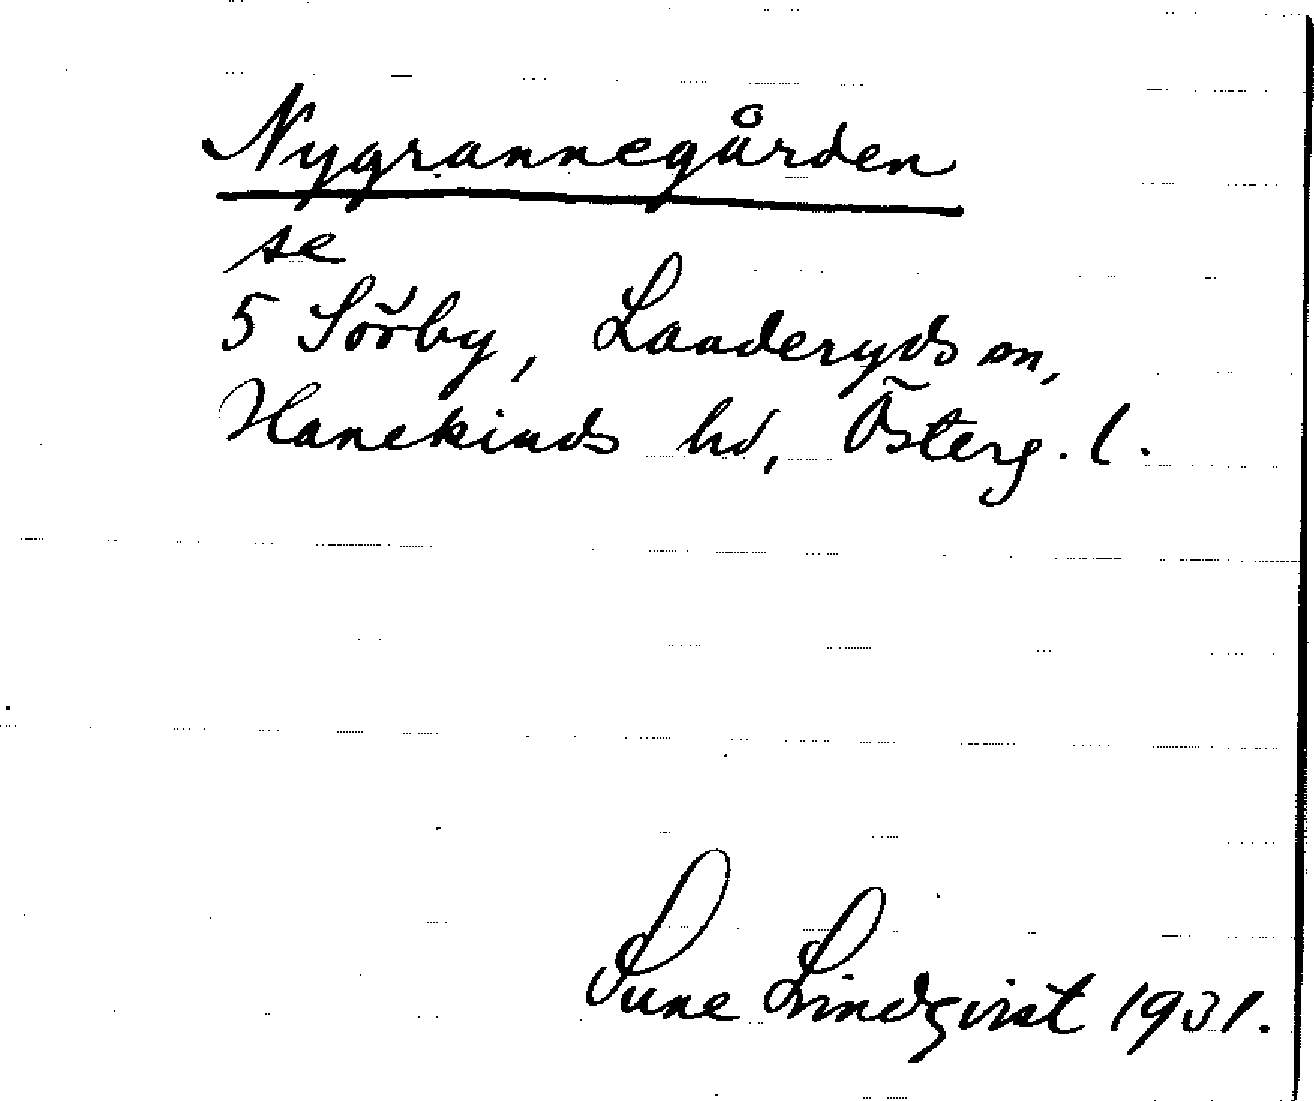 Nygrannegården
se
5 Sörby, Landeryds sn,
Hanekinds hd, Österg. l.
Sune Lindqvist 1931.